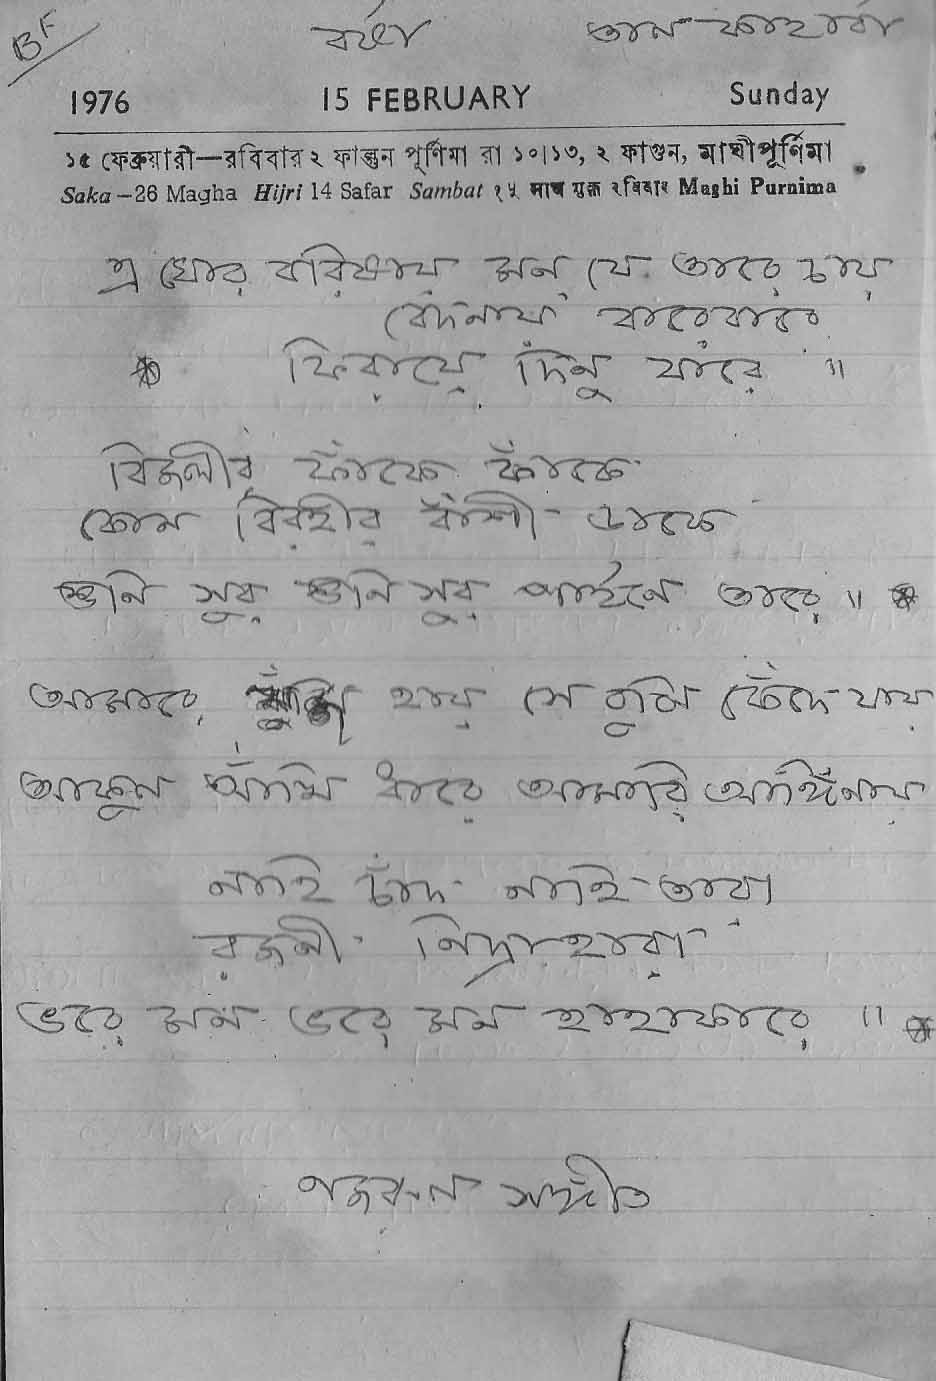 BF
বর্ষা তাল কাহারবা
1976 15 FEBRUARY Sunday
১৫ ফেব্রুয়ারী—রবিবার ২ ফাল্গুন পূর্ণিমা রা ১০।১৩, ২ ফাগুন, মাঘীপূর্ণিমা
Saka –26 Magha Hijri 14 Safar Sambat १५ माघ शुक्ल रविवार Maghi Purnima
এ ঘোর বরিষায় মন যে তারে চায়
বেদনায় বারেবারে
ফিরায়ে দিনু যারে ॥
বিজলীর ফাঁকে ফাঁকে
কোন বিরহীর বাঁশী ডাকে
শুনি সুর শুনি সুর পাইনে তারে ॥
আমারে খুঁজি হায় সে বুঝি কেঁদে যায়
আকুল আঁখি ধারে আমারি আঙ্গিনায়
নাই চাঁদ নাই তারা
রজনী নিদ্রাহারা
ভরে মন ভরে মন হাহাকারে ॥
নজরুল সঙ্গীত